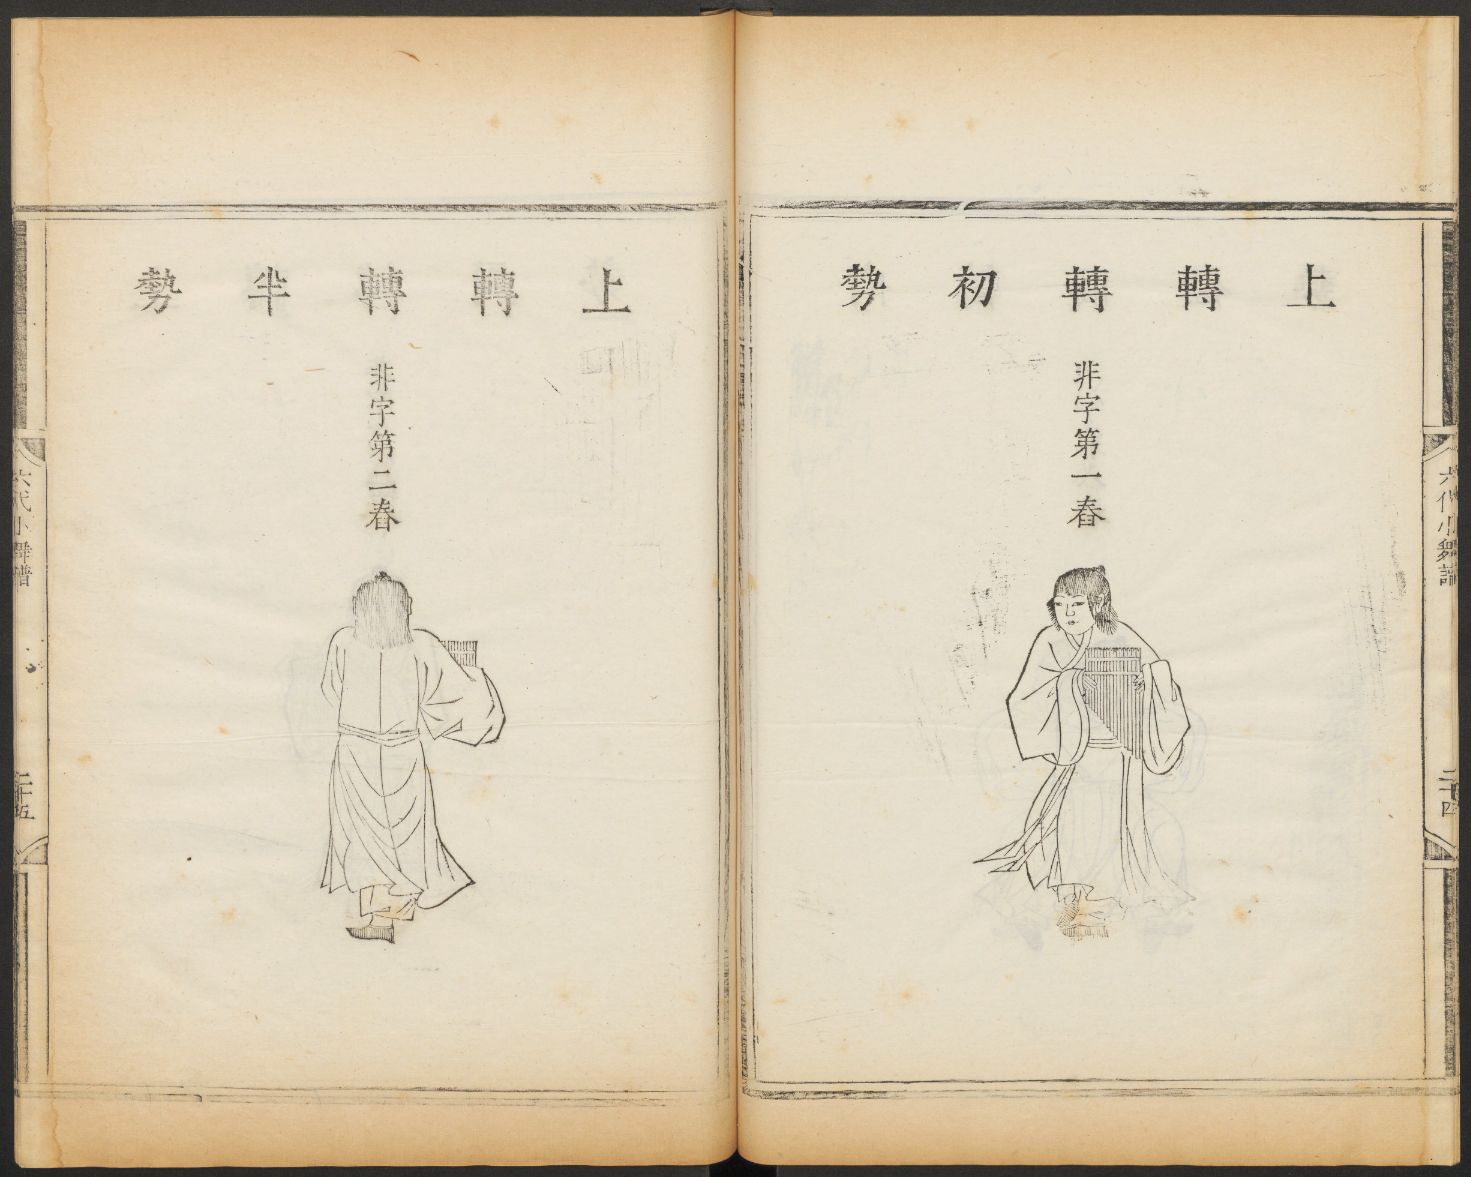 上轉轉初勢
非字第一舂
六代小舞譜
二十四
上轉轉半勢
非字第二舂
六代小舞譜
二十五